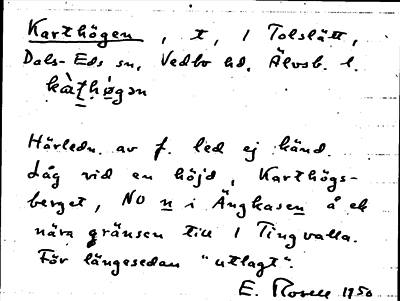 Karthögen, t, 1 Tolslätt,
Dals-Eds sn, Vedbo hd, Älvsb. l.
kàt̠hø̀gən
Härledn. av f. led ej känd.
Låg vid en höjd, Karthögs-
berget, NO n i Ängkasen å ek
nära gränsen till 1 Tingvalla.
För längesedan "utlagt".
E. Rosell 1950